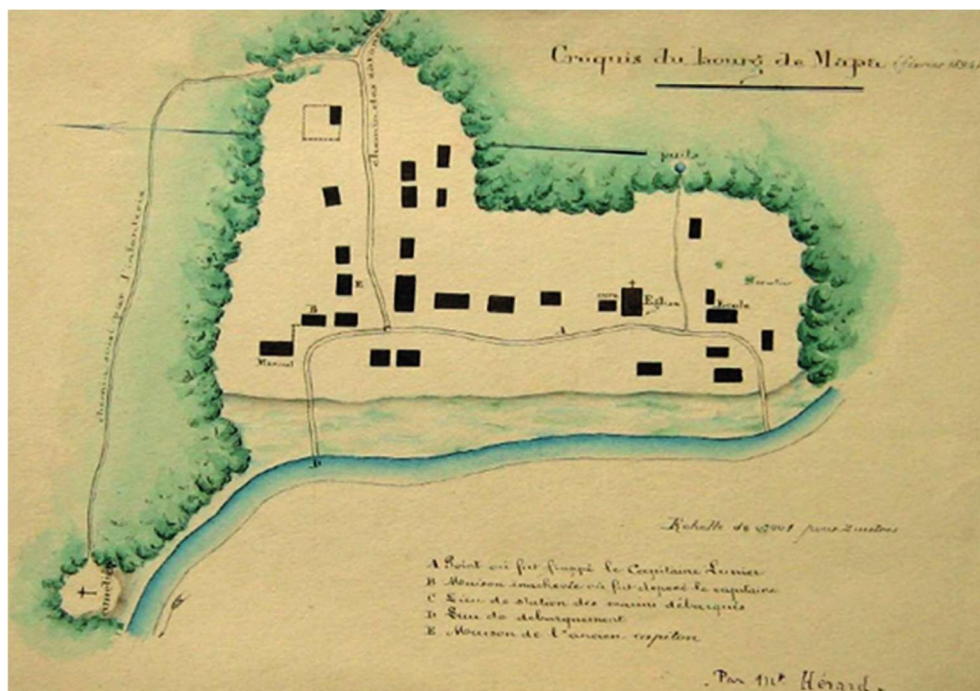 Croquis du bourg de Mapa (février 1894)
chemin des
puits
chemin suivi par l'infanterie
E
cure
Eglise
Ecole
B
A
Manuel
D
cimetière
Echelle de 0,001 pour 2 mètres
A Point où fut frappé le Capitaine Lunier
B Maison inachevée où fut déposé le capitaine
C Lieu de station des marins débarqués
D Lieu de débarquement
E Maison de l'ancien capitan
Par Mr. Hérard